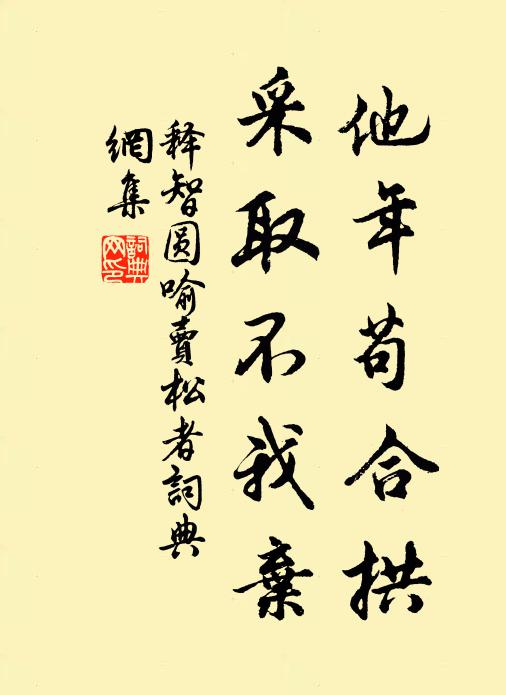 他年苟合拱
采取不我棄
释智圆喻賣松者詞典
網集
詞典
网印